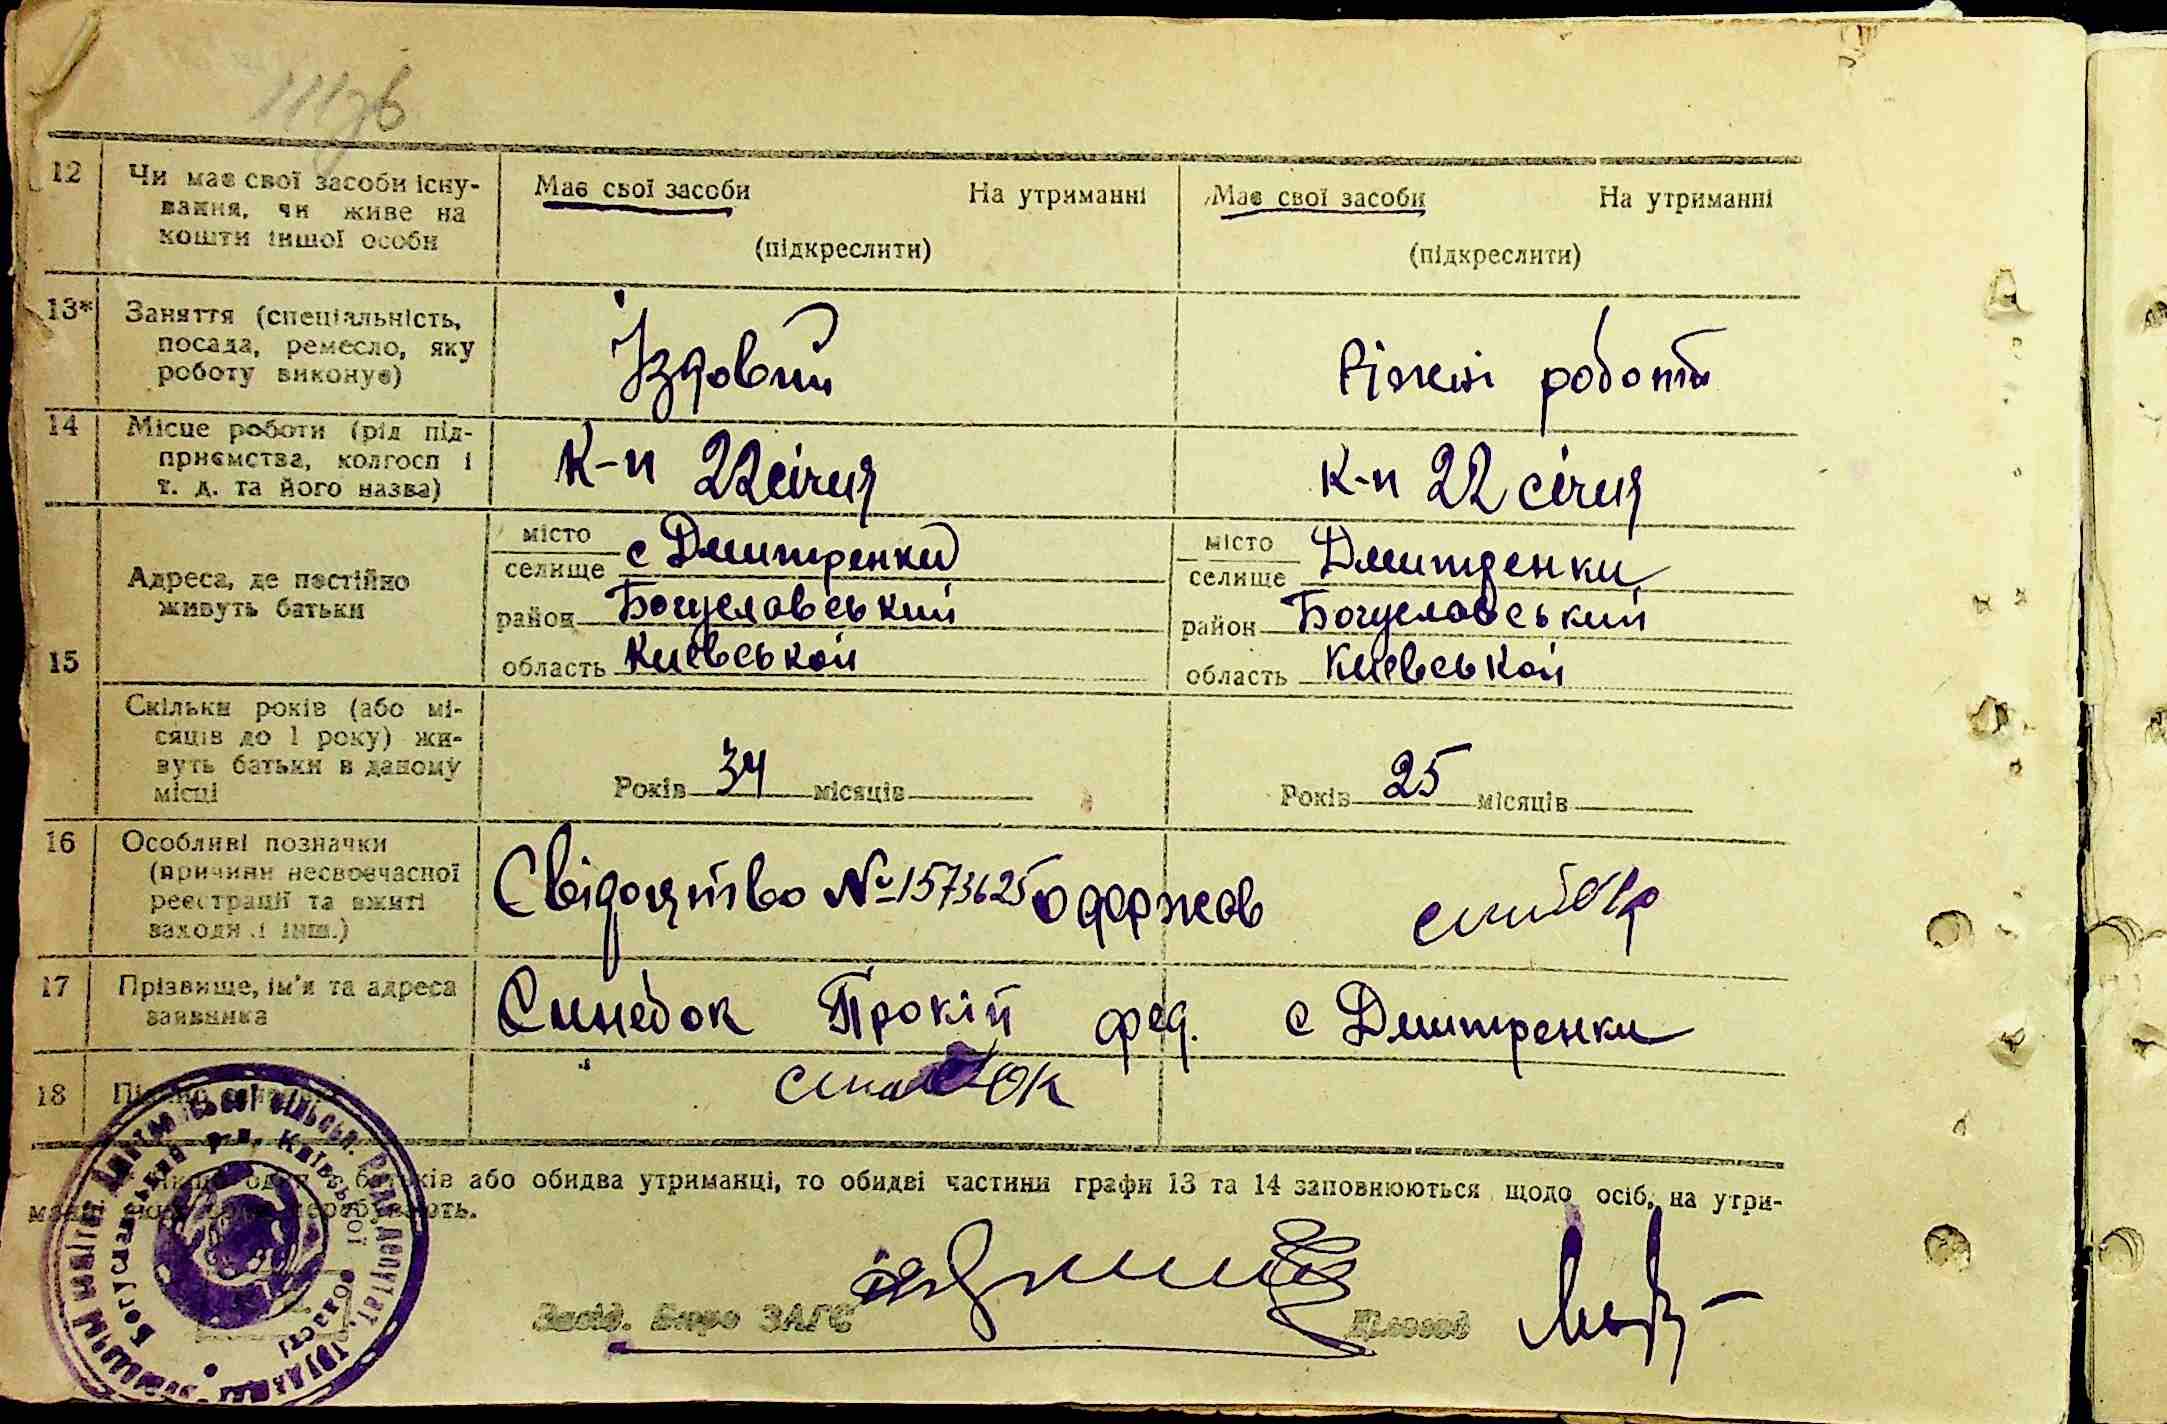 12 Чи має свої засоби існу-
вання, чи живе на
кошти іншої особи
Має свої засоби На утриманні
(підкреслити)
Має свої засоби На утриманні
(підкреслити)
13* Заняття (спеціальність,
посада, ремесло, яку
роботу виконує)
Їздовий
Ріжні роботи
14 Місце роботи (рід під-
приємства, колгосп і
т. д. та його назва)
К-п 22 січня
К-п 22 січня
15
Адреса, де постійно
живуть батьки
місто
селище с Дмитренки
район Богуславський
область Киевськой
місто
селище Дмитренки
район Богуславський
область Киевськой
Скільки років (або мі-
сяців до 1 року) жи-
вуть батьки в даному
місці
Років 34 місяців
Років 25 місяців
16 Особливі позначки
(причини несвоєчасної
реєстрації та вжиті
заходи і інш.)
Свідоцтво № 1573625 одержав
17 Прізвище, ім'я та адреса
заявника
Синебок Прокіп фед. с Дмитренки
18
або обидва утриманці, то обидві частини графи 13 та 14 заповнюються щодо осіб, на утри-
Завід. Бюро ЗАГС
Діловод
Богуславський р-н, Київської області